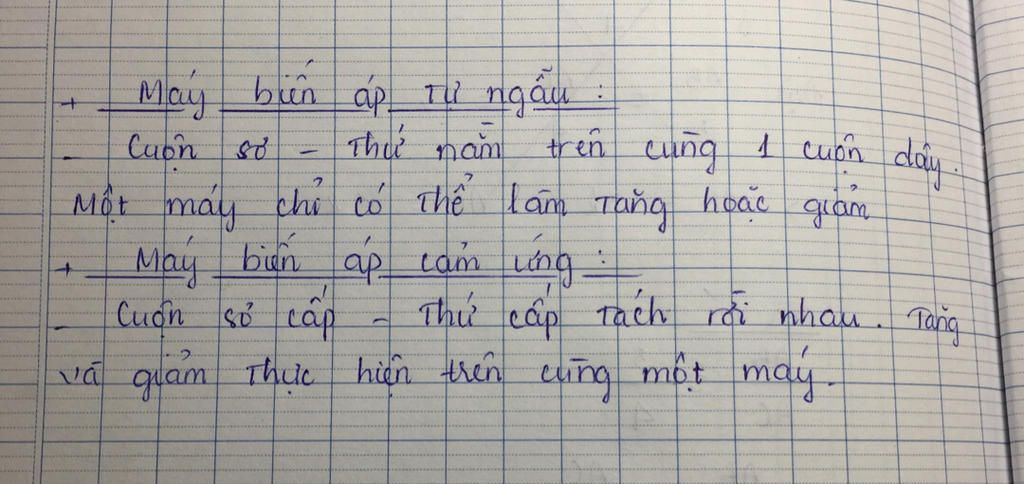 + Máy biến áp tự ngẫu :
- Cuộn sơ - thứ nằm trên cùng 1 cuộn dây.
Một máy chỉ có thể làm tăng hoặc giảm
+ Máy biến áp cảm ứng :
- Cuộn sơ cấp - thứ cấp tách rời nhau. Tăng
và giảm thực hiện trên cùng một máy.